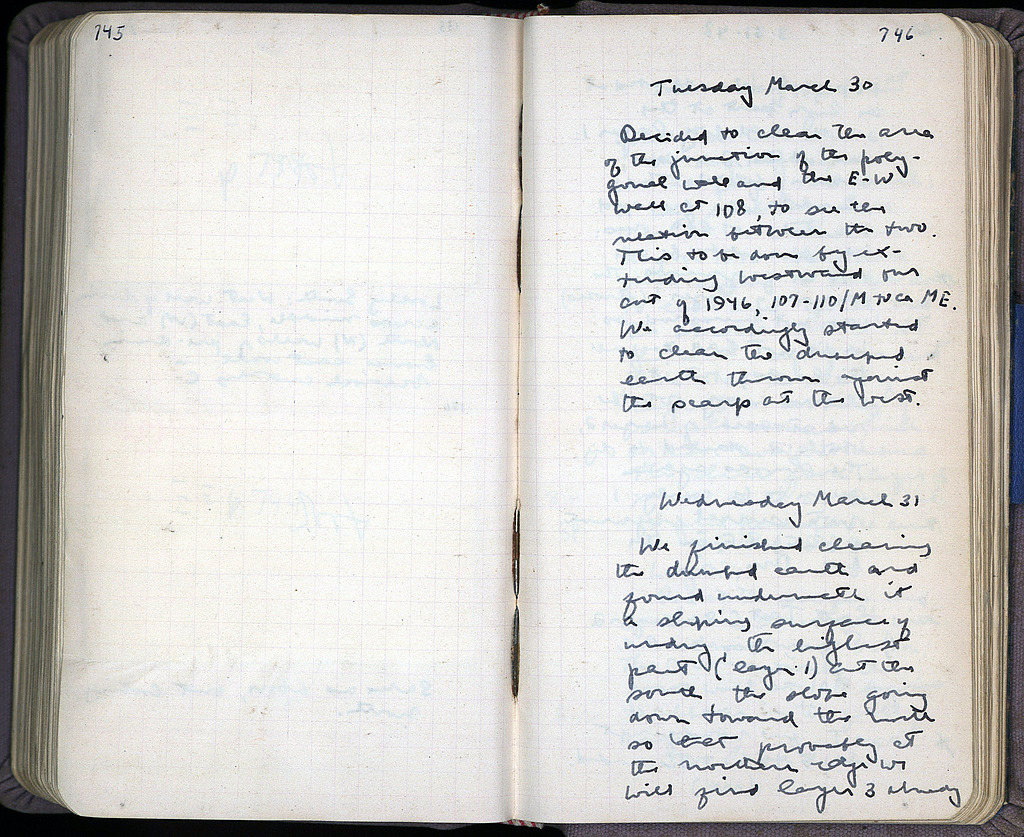 745
746
Tuesday March 30
Decided to clear the area
of the junction of the poly-
gonal wall and the E-W
wall at 108, to see the
relation between the two.
This to be done by ex-
tending westward our
cut of 1946, 107-110/M to ca ME.
We accordingly started
to clear the dumped
earth thrown against
the scarp at the west.
Wednesday March 31
We finished clearing
the dumped earth and
found underneath it
a sloping surface of
the highest
part (layer 1) at the
south the slope going
down toward the north
so that probably at
the northern edge we
will find layer 3 already